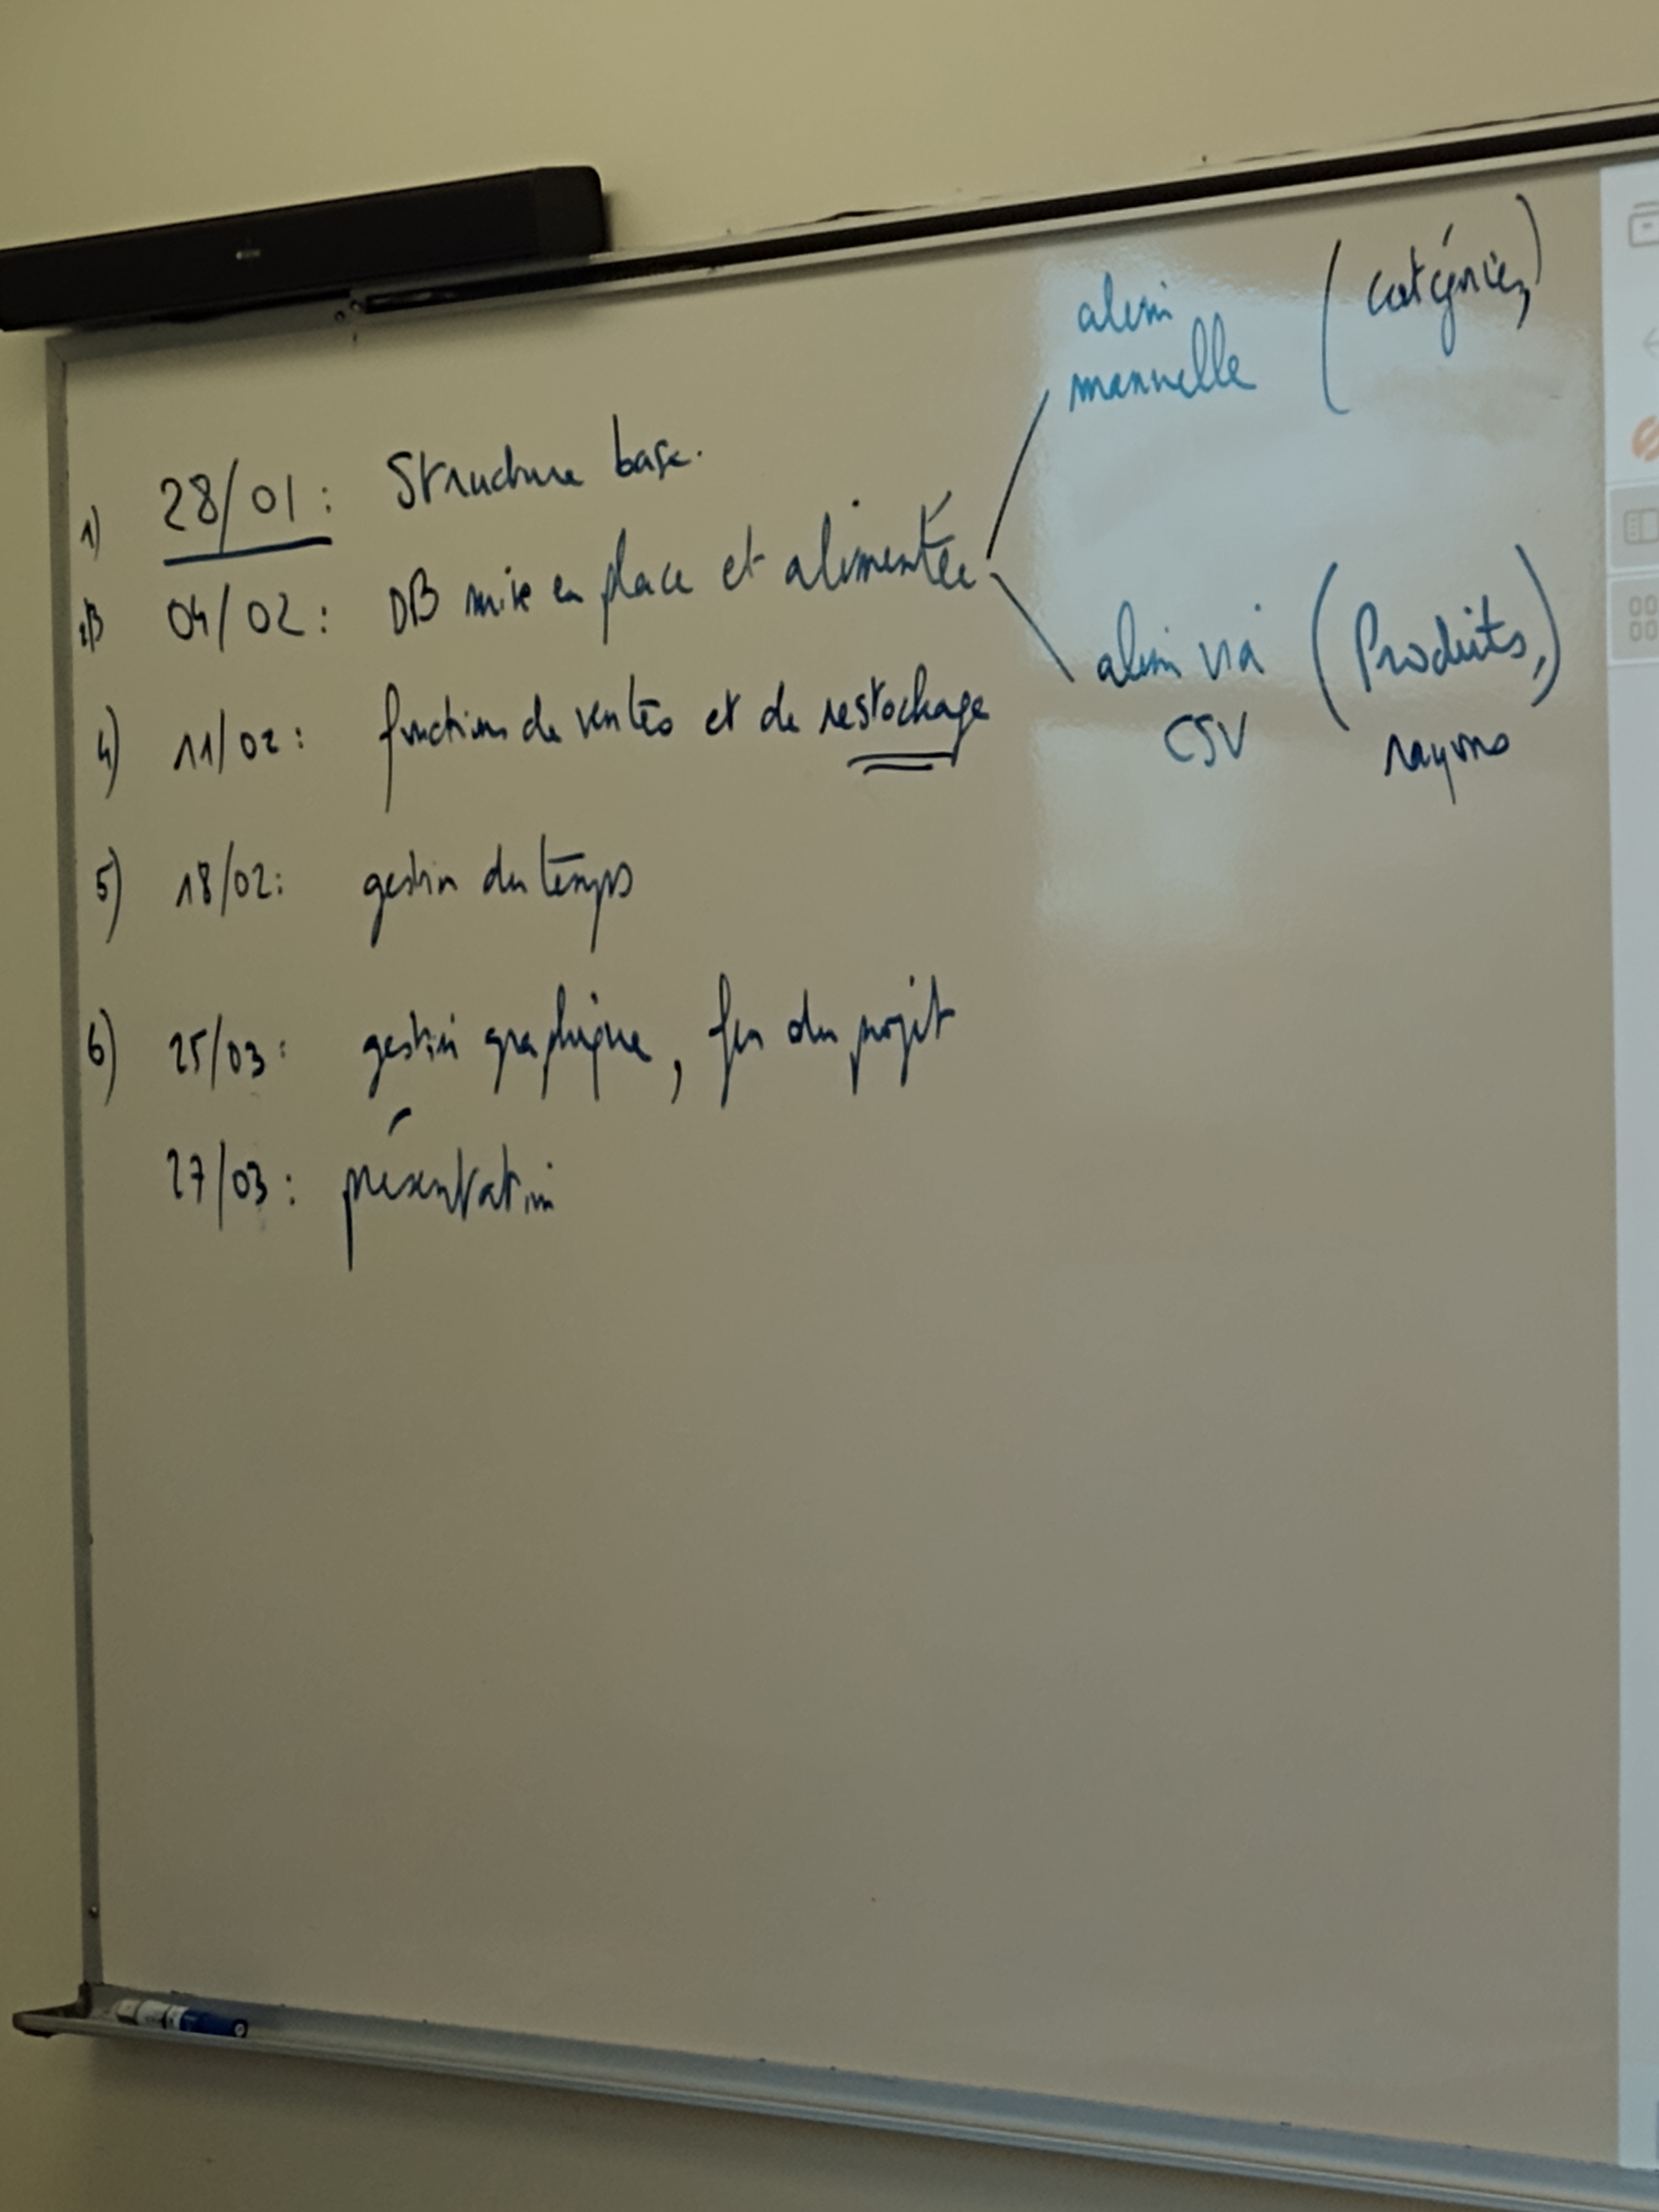 1) 28/01 : Structure base.
04/02 : DB mise en place et alimentée
alim
manuelle (catégories)
alim via (Produits,)
CSV rayons
4) 11/02 : fonctions de ventes et de restockage
5) 18/02 : gestion du temps
6) 25/03 : gestion graphique, fin du projet
27/03 : présentation